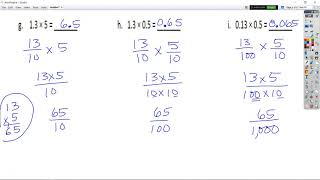 g. 1.3 × 5 = 6.5
13/10 × 5
13 × 5
10
65
10
13
× 5
65
h. 1.3 × 0.5 = 0.65
13/10 × 5/10
13 × 5
10 × 10
65
100
i. 0.13 × 0.5 = 0.065
13/100 × 5/10
13 × 5
100 × 10
65
1,000